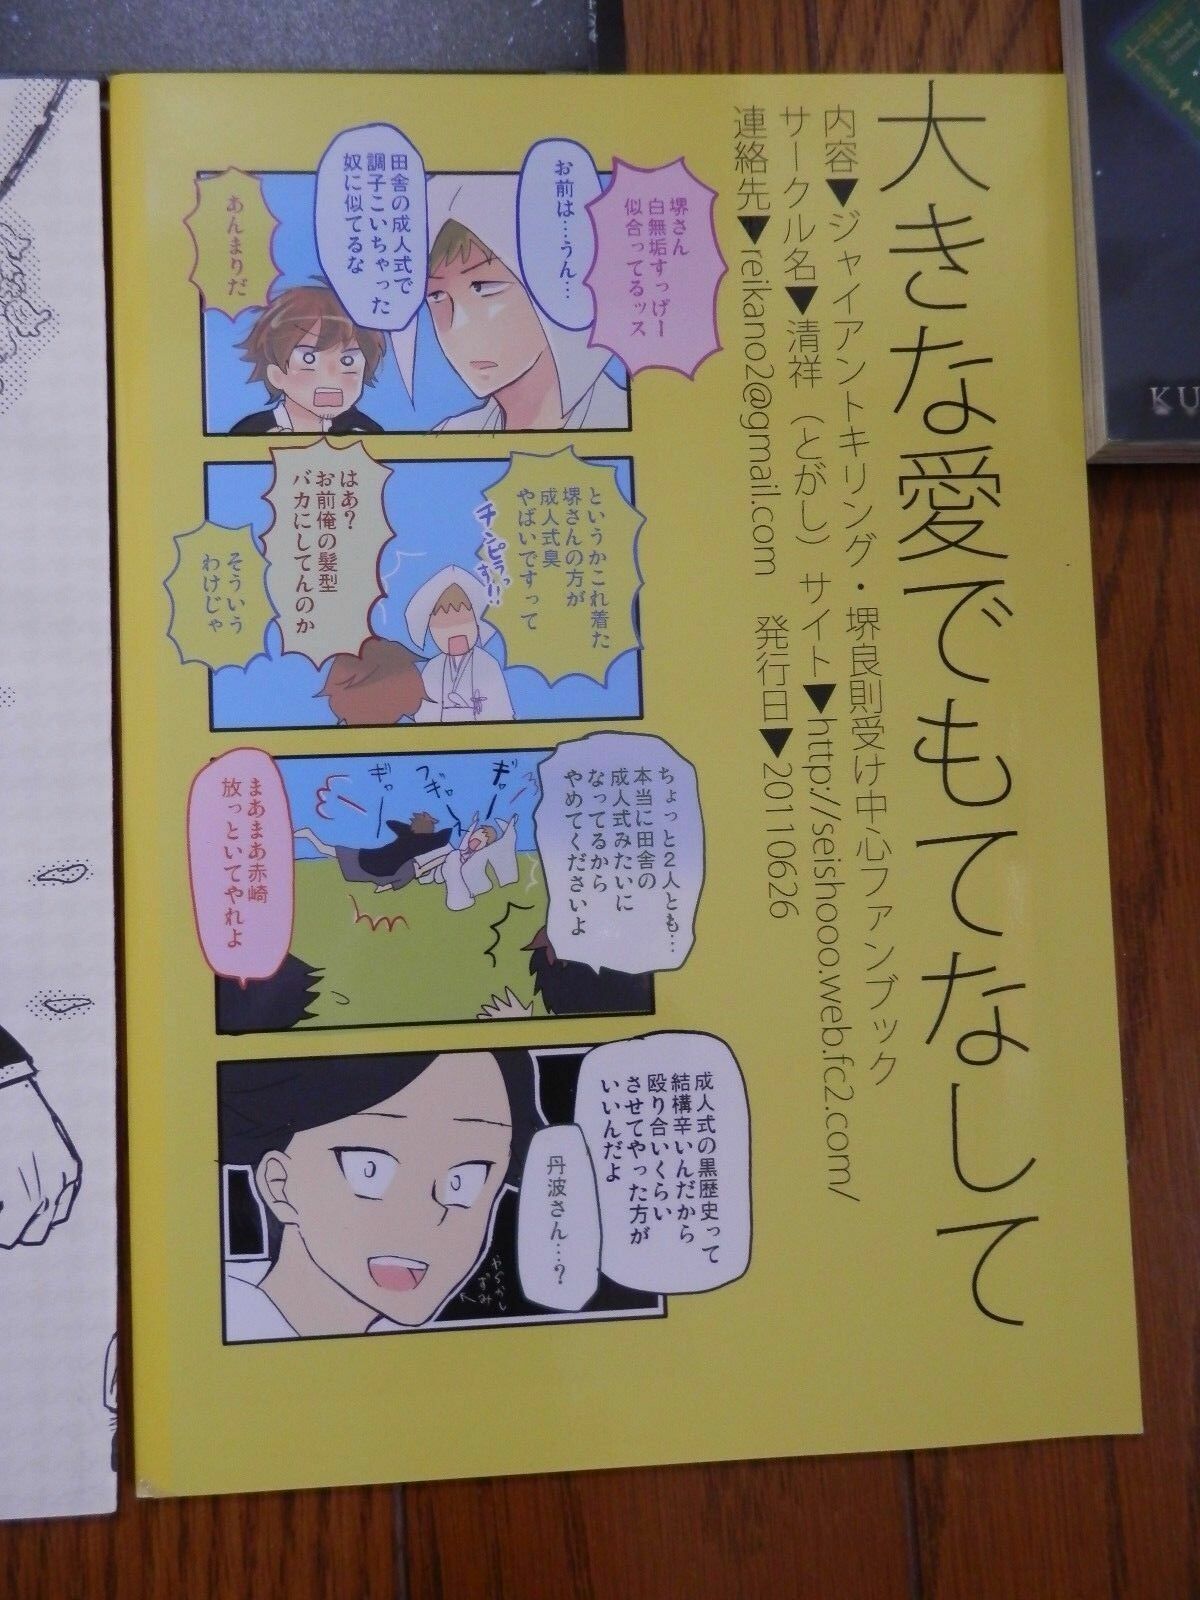 大きな愛でもてなして
内容▼ジャイアントキリング・堺良則受け中心ファンブック
サークル名▼清祥（とがし）　サイト▼http://seishooo.web.fc2.com/
連絡先▼reikano2@gmail.com　発行日▼20110626
堺さん
白無垢すっげー
似合ってるッス
お前は…うん…
田舎の成人式で
調子こいちゃった
奴に似てるな
あんまりだ
というかこれ着た
堺さんの方が
成人式臭
やばいですって
チンピラっす!!
はあ？
お前俺の髪型
バカにしてんのか
そういう
わけじゃ
ちょっと2人とも…
本当に田舎の
成人式みたいに
なってるから
やめてくださいよ
ギャッ
フギッ
ギッ
まあまあ赤崎
放っといてやれよ
成人式の黒歴史って
結構辛いんだから
殴り合いくらい
させてやった方が
いいんだよ
丹波さん…？
やらかし
ずみ
KU